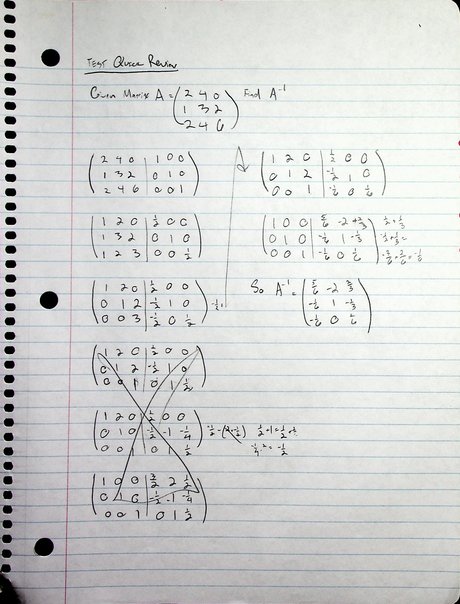 Test Quick Review
Given Matrix A = (2 4 0 Find A⁻¹
1 3 2
2 4 6)
(2 4 0 | 1 0 0
1 3 2 | 0 1 0
2 4 6 | 0 0 1)
(1 2 0 | 1/2 0 0
1 3 2 | 0 1 0
1 2 3 | 0 0 1/2)
(1 2 0 | 1/2 0 0
0 1 2 | -1/2 1 0
0 0 3 | -1/2 0 1/2)
(1 2 0 | 1/2 0 0
0 1 2 | -1/2 1 0
0 0 1 | 0 1 1/2)
(1 2 0 | 1/2 0 0
0 1 0 | -1/2 -1 -1/4
0 0 1 | 0 1 1/2)
(1 0 0 | 3/2 2 1/2
0 1 0 | -1/2 -1 -1/4
0 0 1 | 0 1 1/2)
(1 2 0 | 1/2 0 0
0 1 2 | -1/2 1 0
0 0 1 | -1/6 0 1/6)
(1 0 0 | 5/6 -2 2/3
0 1 0 | -1/6 1 -1/3
0 0 1 | -1/6 0 1/6)
So A⁻¹ = (5/6 -2 2/3
-1/6 1 -1/3
-1/6 0 1/6)